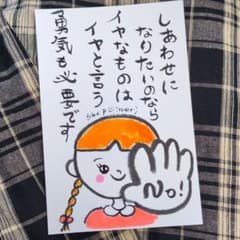 しあわせに
なりたいのなら
イヤなものは
イヤと言う
勇気も必要です
No!